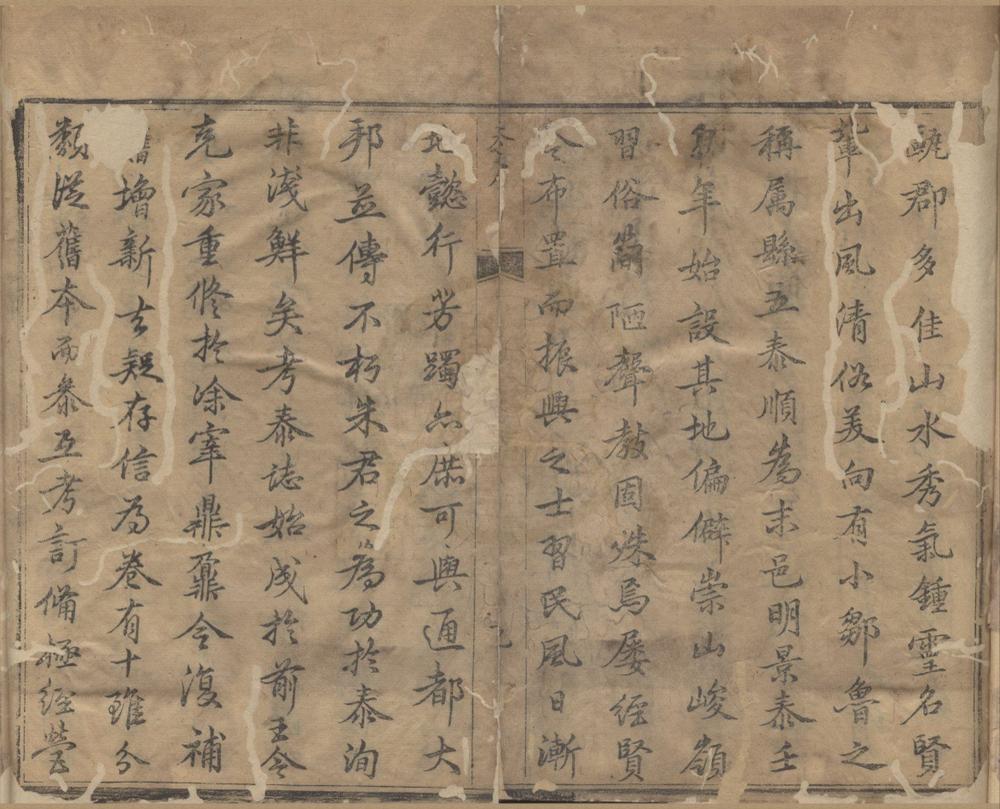 甌郡多佳山水秀氣鍾靈名賢
輩出風清俗美向有小鄒魯之
稱属縣五泰順為末邑明景泰壬
申年始設其地偏僻崇山峻嶺
習俗崗陋聲教固殊焉屡經賢
令布置而振興之士習民風日漸
懿行芳躅亦庶可與通都大
邦並傳不朽朱君之為功於泰洵
非淺鮮矣考泰誌始成於前王令
克家重修於涂宰鼎鼐今復補
舊增新去疑存信為卷有十雖分
類從舊本而叅互考訂備極經營